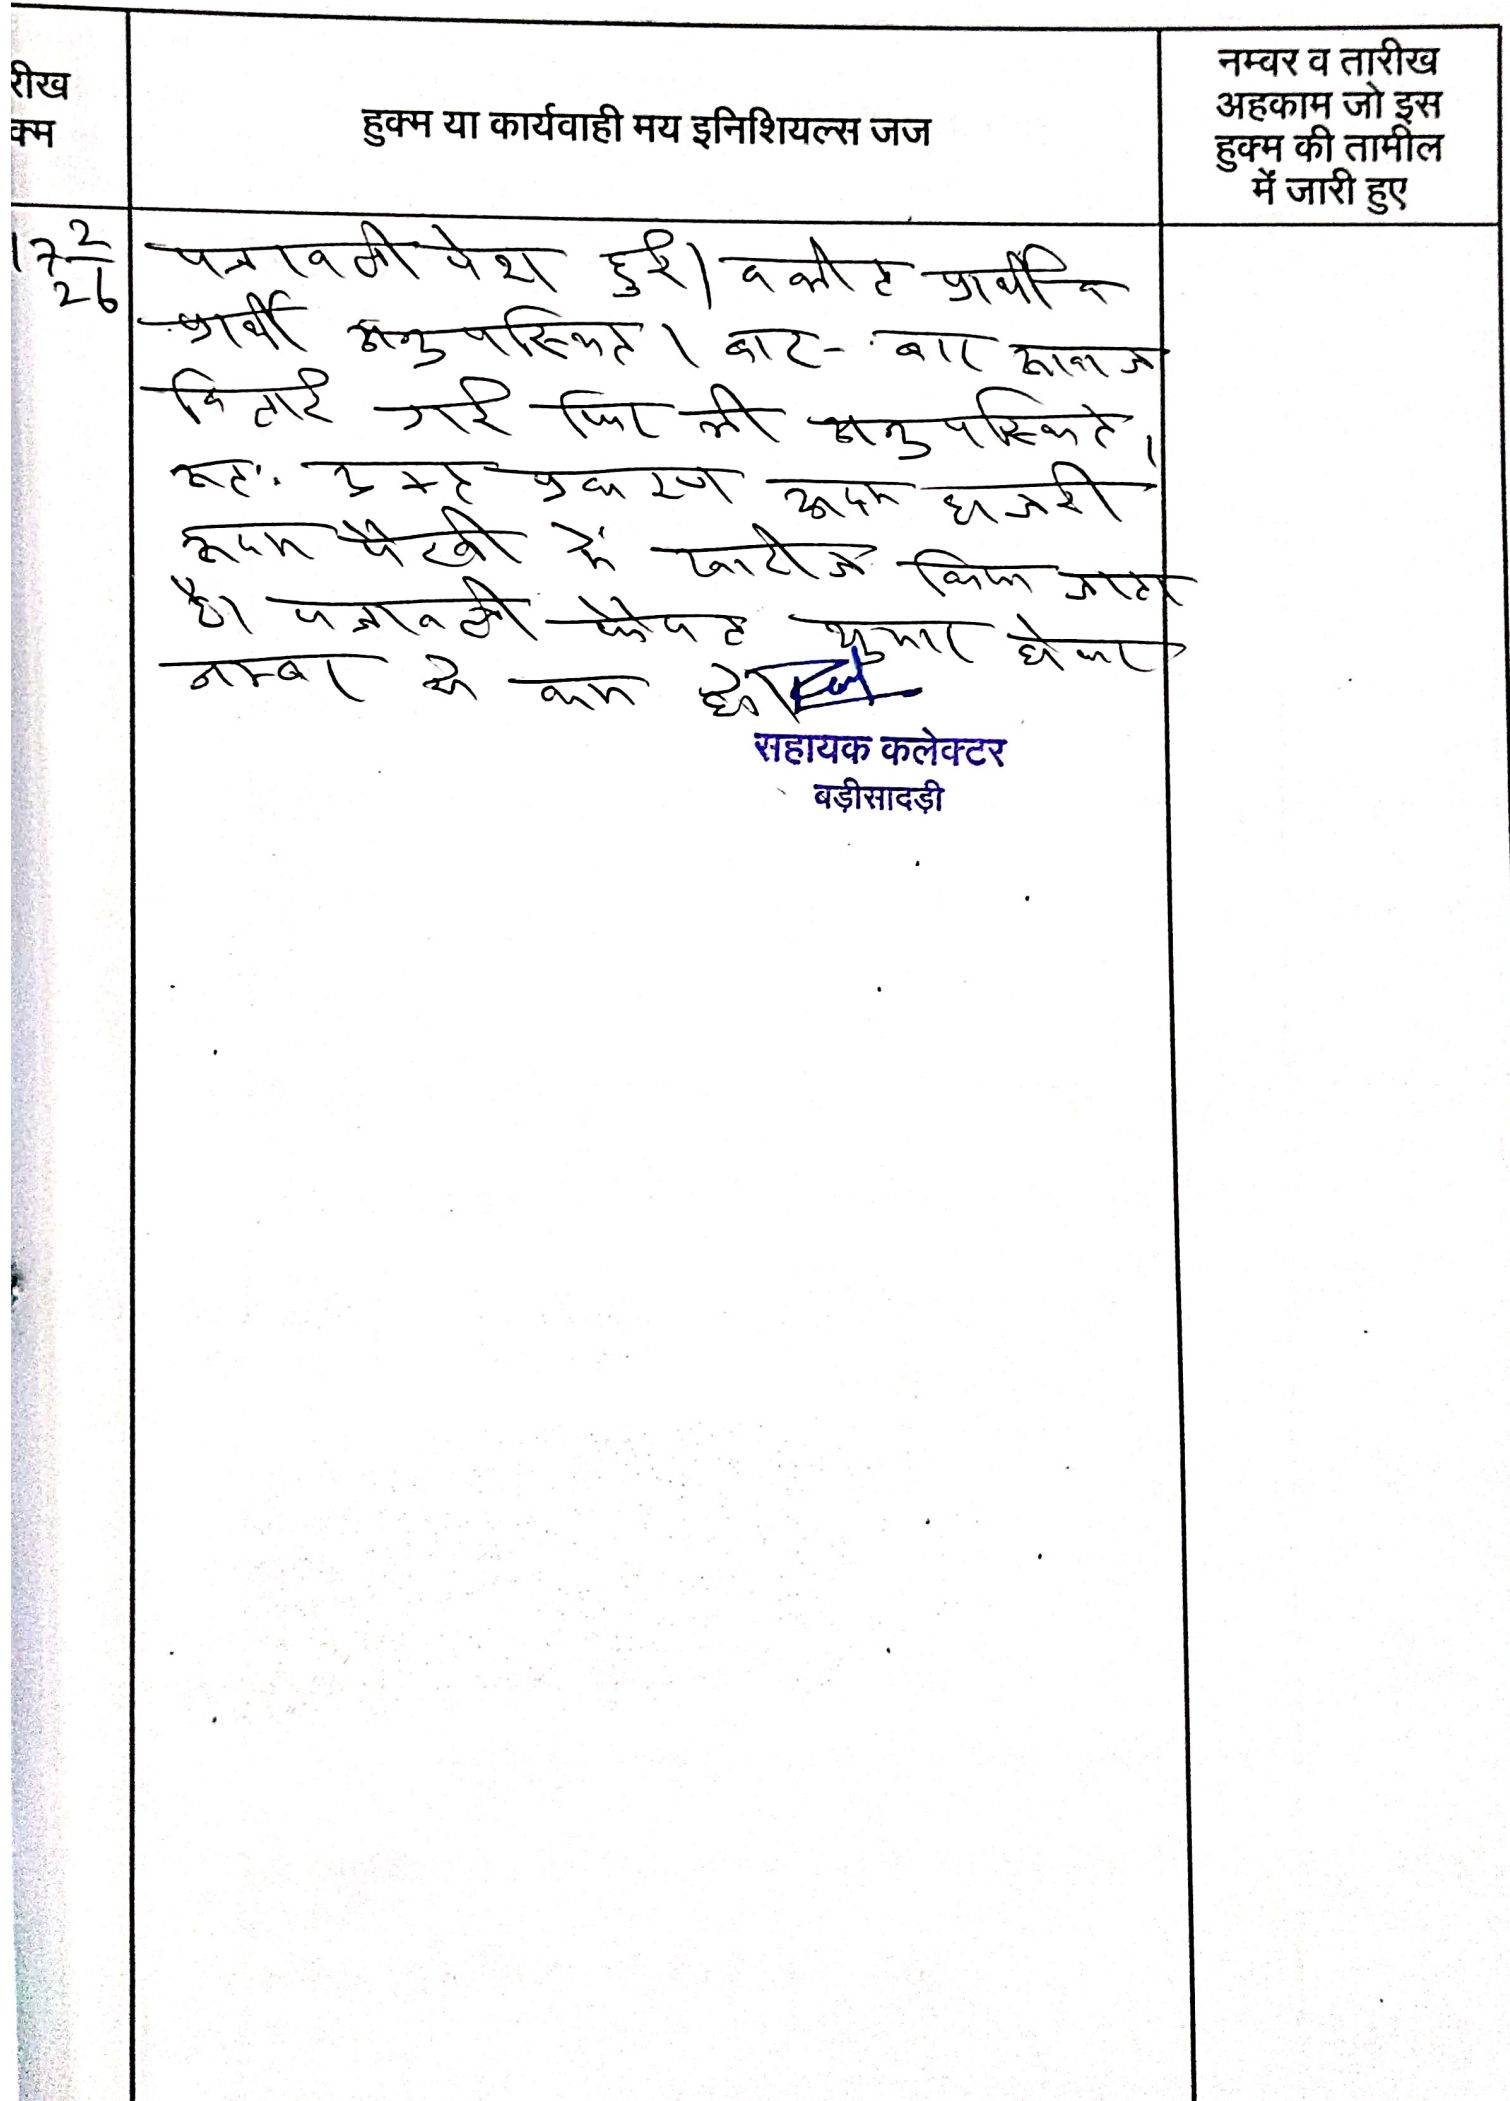 रीख
क्म
हुक्म या कार्यवाही मय इनिशियल्स जज
नम्बर व तारीख
अहकाम जो इस
हुक्म की तामील
में जारी हुए
17 2/26
पत्रावली पेश हुई। वकील प्रार्थी व
प्रार्थी अनुपस्थित। बार-बार आवाज
दिलाई गई फिर भी अनुपस्थित।
अतः प्रकरण अदम हाजरी
अदम पैरवी में खारीज किया जाता
है। पत्रावली फैसल शुमार होकर
नम्बर से कम हो।
सहायक कलेक्टर
बड़ीसादड़ी